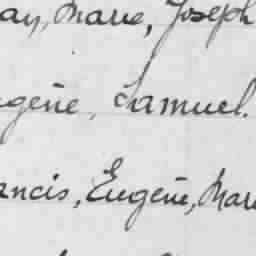 ay, Marie, Joseph
gène, Samuel.
ancis, Eugène, Mar